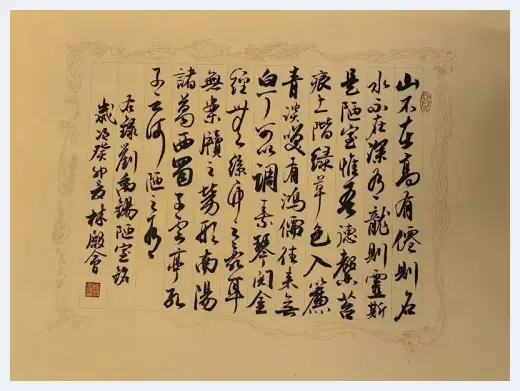 山不在高有僊則名
水不在深有龍則靈斯
是陋室惟吾德馨苔
痕上階綠草色入簾
青談笑有鴻儒往來無
白丁可以調素琴閱金
經無絲竹之亂耳
無案牘之勞形南陽
諸葛西蜀子雲亭孔
子云何陋之有
右錄劉禹錫陋室銘
歲次癸卯林會